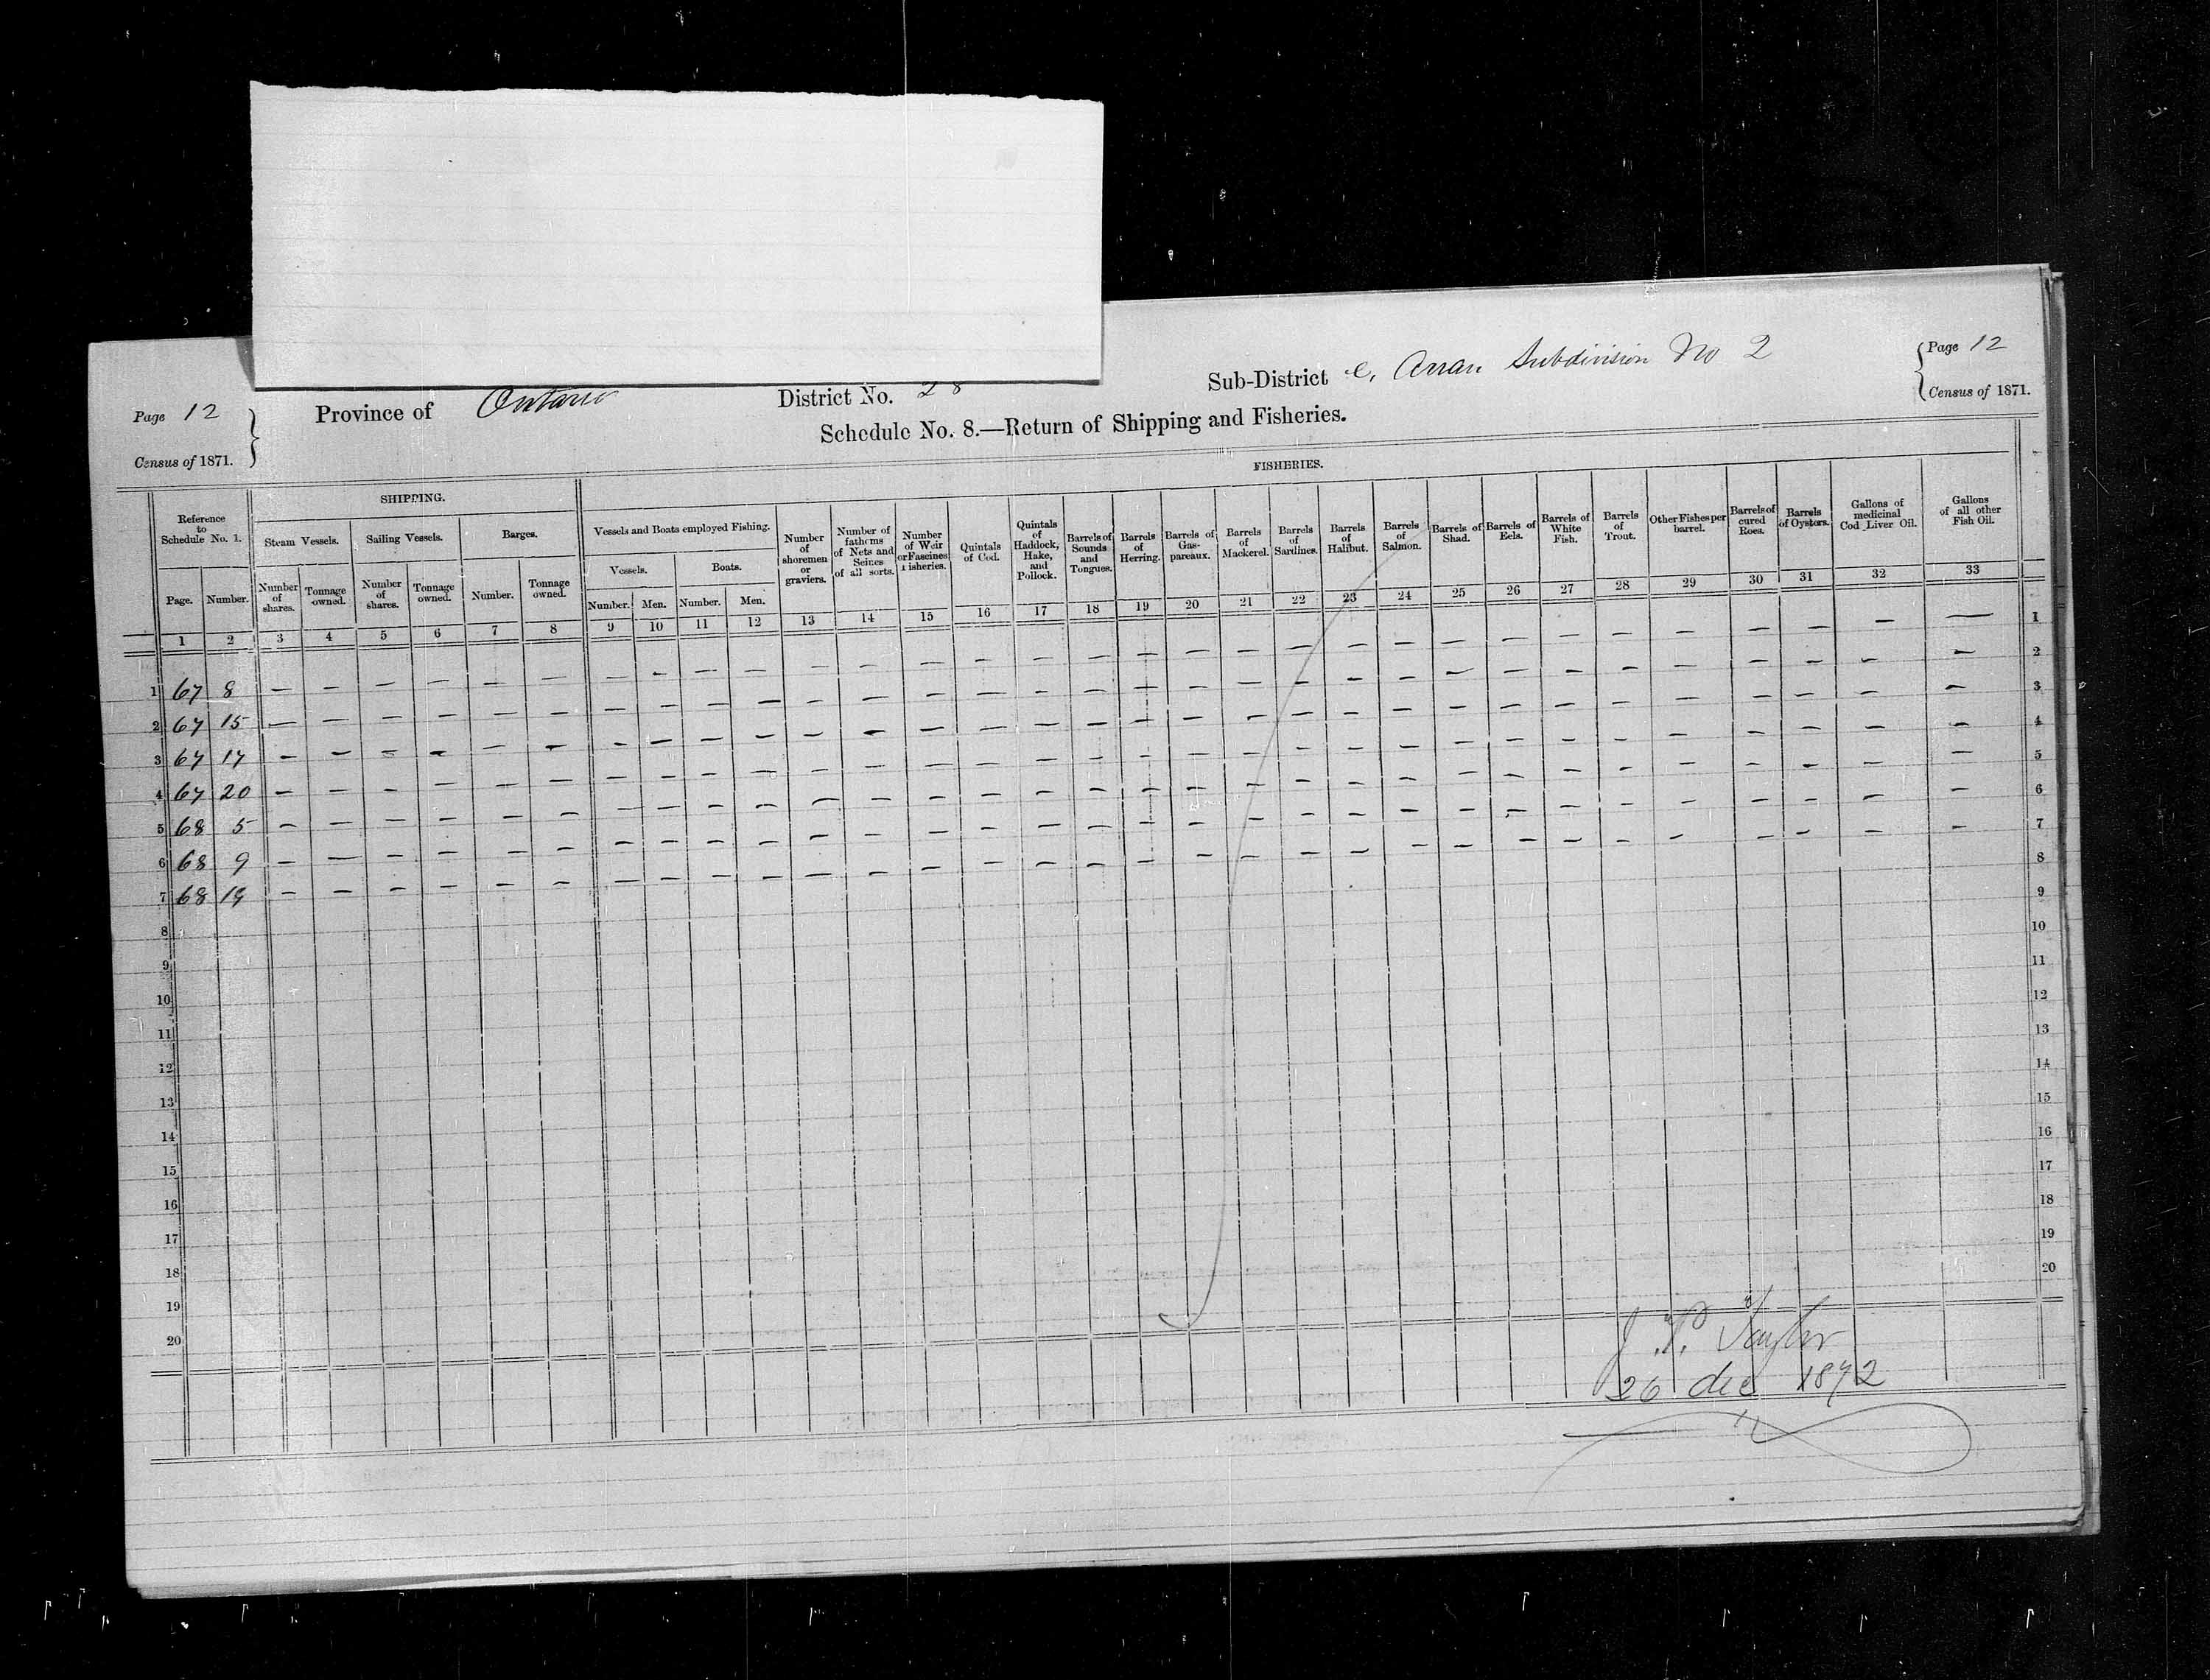 Page 12
Census of 1871.
Province of Ontario
District No. 28
Sub-District e, Arran Subdivision No 2
Page 12
Census of 1871.
Schedule No. 8.—Return of Shipping and Fisheries.
Reference to Schedule No. 1.
SHIPPING.
FISHERIES.
Steam Vessels. Sailing Vessels. Barges.
Vessels and Boats employed Fishing.
Vessels. Boats.
Page. Number.
Number of shares. Tonnage owned. Number of shares. Tonnage owned. Number. Tonnage owned.
Number. Men. Number. Men.
Number of shoremen or graviers.
Number of fathoms of Nets and Seines of all sorts.
Number of Weir or Fascines Fisheries.
Quintals of Cod.
Quintals of Haddock, Hake, and Pollock.
Barrels of Sounds and Tongues.
Barrels of Herring.
Barrels of Gaspareaux.
Barrels of Mackerel.
Barrels of Sardines.
Barrels of Halibut.
Barrels of Salmon.
Barrels of Shad.
Barrels of Eels.
Barrels of White Fish.
Barrels of Trout.
Other Fishes per barrel.
Barrels of cured Roes.
Barrels of Oysters.
Gallons of medicinal Cod Liver Oil.
Gallons of all other Fish Oil.
1 2 3 4 5 6 7 8 9 10 11 12 13 14 15 16 17 18 19 20 21 22 23 24 25 26 27 28 29 30 31 32 33
1 67 8 — — — — — — — — — — — — — — — — — — — — — — — — — — — — — — — 1
2 67 15 — — — — — — — — — — — — — — — — — — — — — — — — — — — — — — — 2
3 67 17 — — — — — — — — — — — — — — — — — — — — — — — — — — — — — — — 3
4 67 20 — — — — — — — — — — — — — — — — — — — — — — — — — — — — — — — 4
5 68 5 — — — — — — — — — — — — — — — — — — — — — — — — — — — — — — — 5
6 68 9 — — — — — — — — — — — — — — — — — — — — — — — — — — — — — — — 6
7 68 — — — — — — — — — — — — — — — — — — — — — — — — — — — — — — — 7
8 8
9 9
10 10
11 11
12 12
13 13
14 14
15 15
16 16
17 17
18 18
19 19
20 20
J. P. Taylor
26 dec 1872